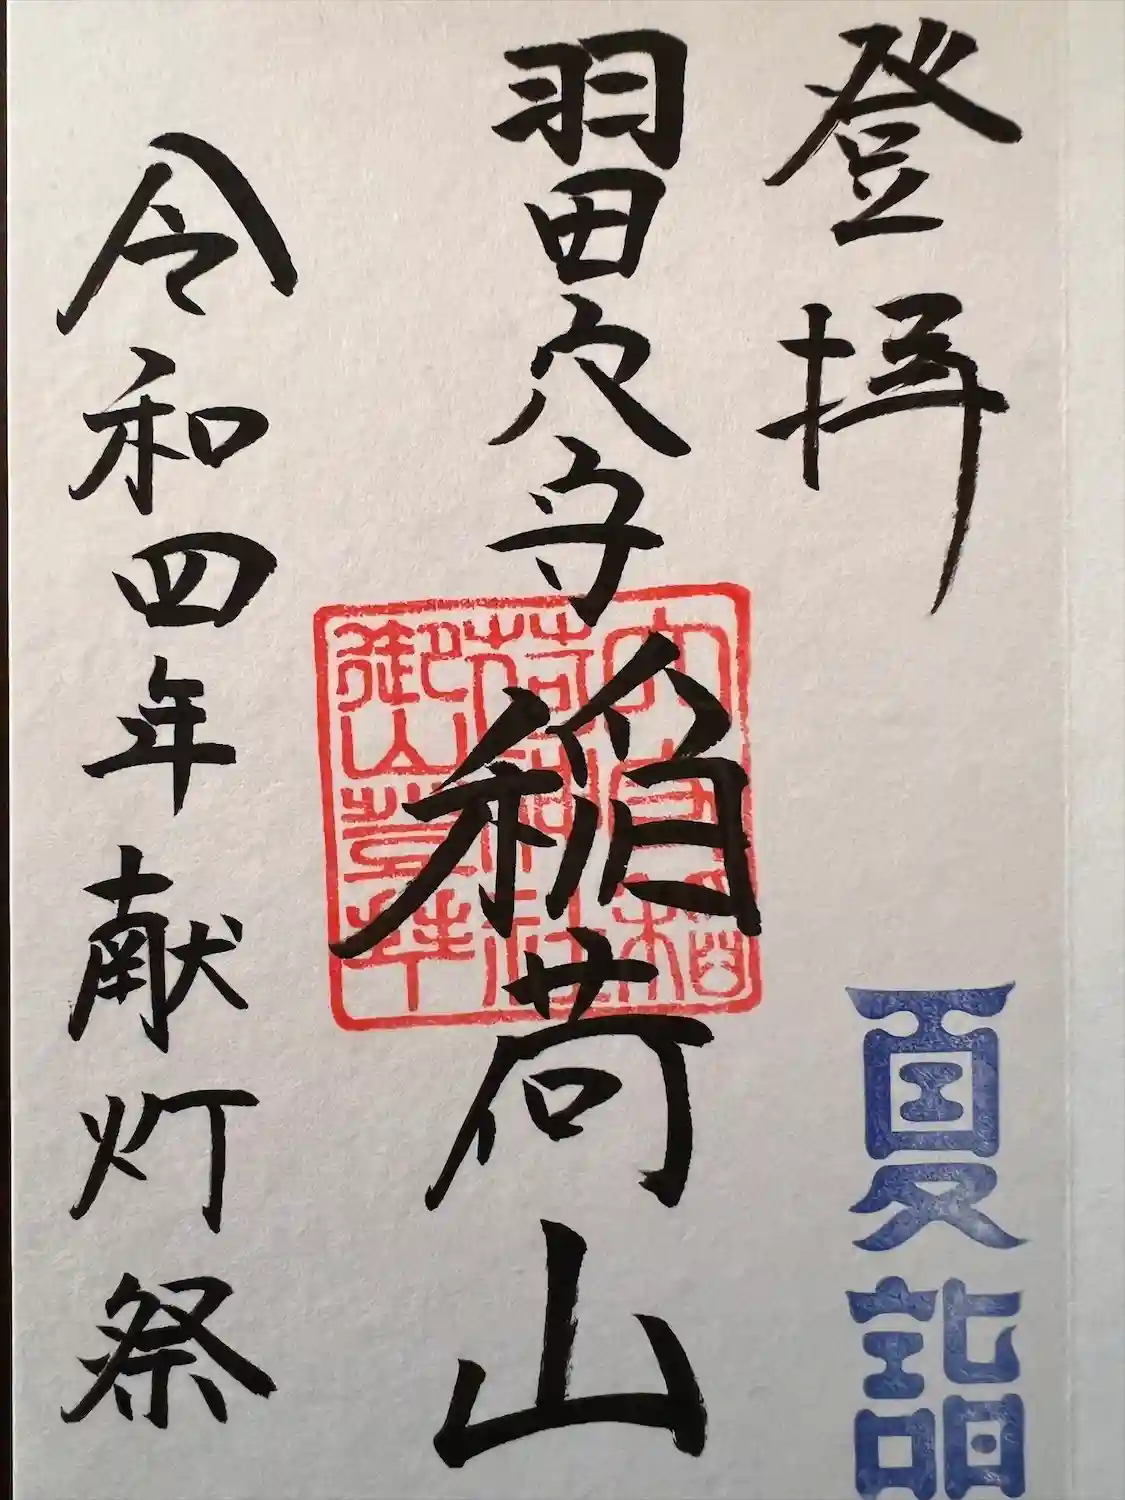 登拝
夏詣
羽田穴守稲荷山
穴守稲
荷神社
御山登拝
令和四年献灯祭